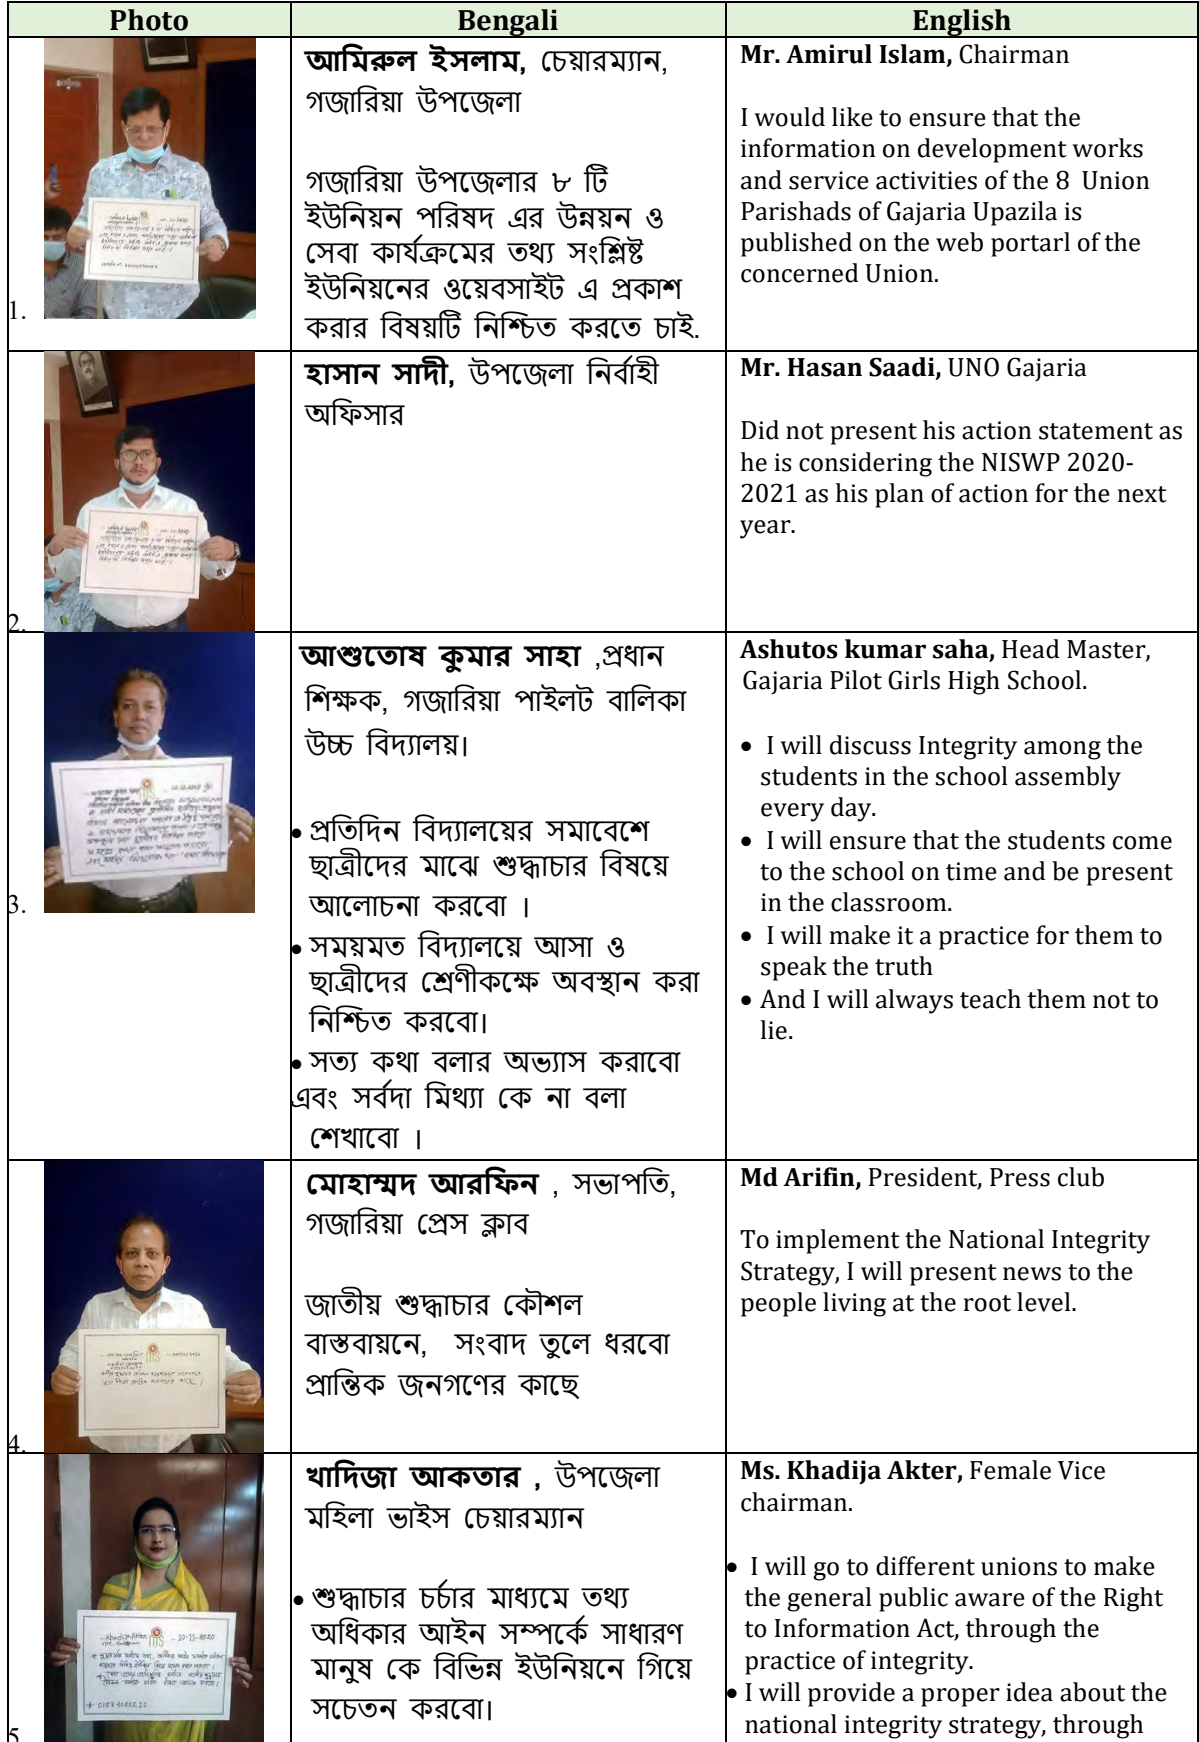 Photo Bengali English
1.
আমিরুল ইসলাম, চেয়ারম্যান,
গজারিয়া উপজেলা
গজারিয়া উপজেলার ৮ টি
ইউনিয়ন পরিষদ এর উন্নয়ন ও
সেবা কার্যক্রমের তথ্য সংশ্লিষ্ট
ইউনিয়নের ওয়েবসাইট এ প্রকাশ
করার বিষয়টি নিশ্চিত করতে চাই.
Mr. Amirul Islam, Chairman
I would like to ensure that the
information on development works
and service activities of the 8 Union
Parishads of Gajaria Upazila is
published on the web portarl of the
concerned Union.
2.
হাসান সাদী, উপজেলা নির্বাহী
অফিসার
Mr. Hasan Saadi, UNO Gajaria
Did not present his action statement as
he is considering the NISWP 2020-
2021 as his plan of action for the next
year.
3.
আশুতোষ কুমার সাহা ,প্রধান
শিক্ষক, গজারিয়া পাইলট বালিকা
উচ্চ বিদ্যালয়।
• প্রতিদিন বিদ্যালয়ের সমাবেশে
ছাত্রীদের মাঝে শুদ্ধাচার বিষয়ে
আলোচনা করবো ।
• সময়মত বিদ্যালয়ে আসা ও
ছাত্রীদের শ্রেণীকক্ষে অবস্থান করা
নিশ্চিত করবো।
• সত্য কথা বলার অভ্যাস করাবো
এবং সর্বদা মিথ্যা কে না বলা
শেখাবো ।
Ashutos kumar saha, Head Master,
Gajaria Pilot Girls High School.
• I will discuss Integrity among the
students in the school assembly
every day.
• I will ensure that the students come
to the school on time and be present
in the classroom.
• I will make it a practice for them to
speak the truth
• And I will always teach them not to
lie.
4.
মোহাম্মদ আরফিন , সভাপতি,
গজারিয়া প্রেস ক্লাব
জাতীয় শুদ্ধাচার কৌশল
বাস্তবায়নে, সংবাদ তুলে ধরবো
প্রান্তিক জনগণের কাছে
Md Arifin, President, Press club
To implement the National Integrity
Strategy, I will present news to the
people living at the root level.
5.
Khadija Akter 10-11-2020
খাদিজা আকতার , উপজেলা
মহিলা ভাইস চেয়ারম্যান
• শুদ্ধাচার চর্চার মাধ্যমে তথ্য
অধিকার আইন সম্পর্কে সাধারণ
মানুষ কে বিভিন্ন ইউনিয়নে গিয়ে
সচেতন করবো।
Ms. Khadija Akter, Female Vice
chairman.
• I will go to different unions to make
the general public aware of the Right
to Information Act, through the
practice of integrity.
• I will provide a proper idea about the
national integrity strategy, through